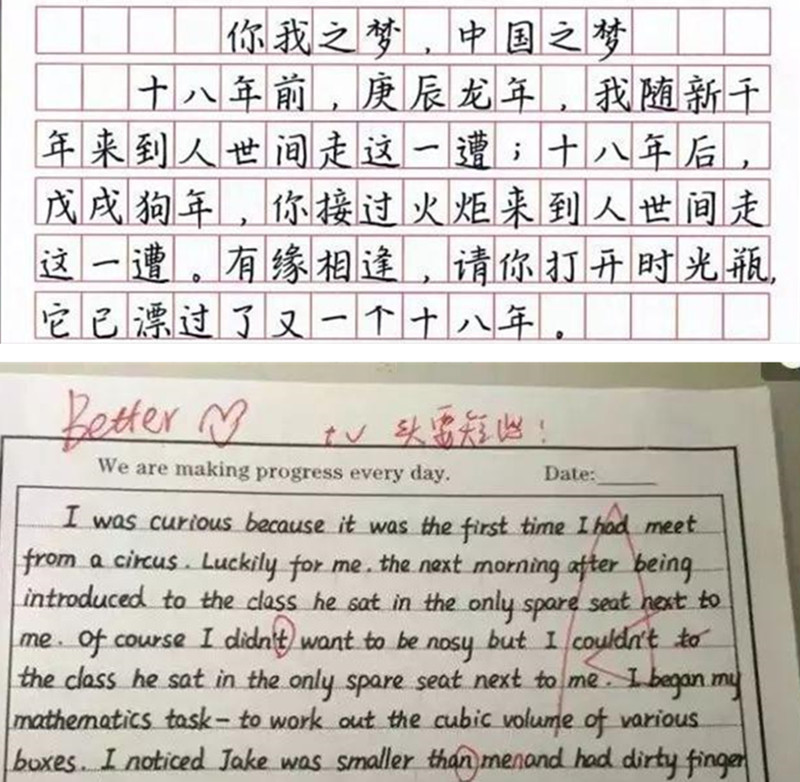 你我之梦，中国之梦
十八年前，庚辰龙年，我随新千
年来到人世间走这一遭；十八年后，
戊戌狗年，你接过火炬来到人世间走
这一遭。有缘相逢，请你打开时光瓶，
它已漂过了又一个十八年。
Better
t v 头要短些！
We are making progress every day. Date:
I was curious because it was the first time I had meet
from a circus. Luckily for me. the next morning after being
introduced to the class he sat in the only spare seat next to
me. Of course I didn't want to be nosy but I couldn't to
the class he sat in the only spare seat next to me. I began my
mathematics task- to work out the cubic volume of various
boxes. I noticed Jake was smaller than me and had dirty finger